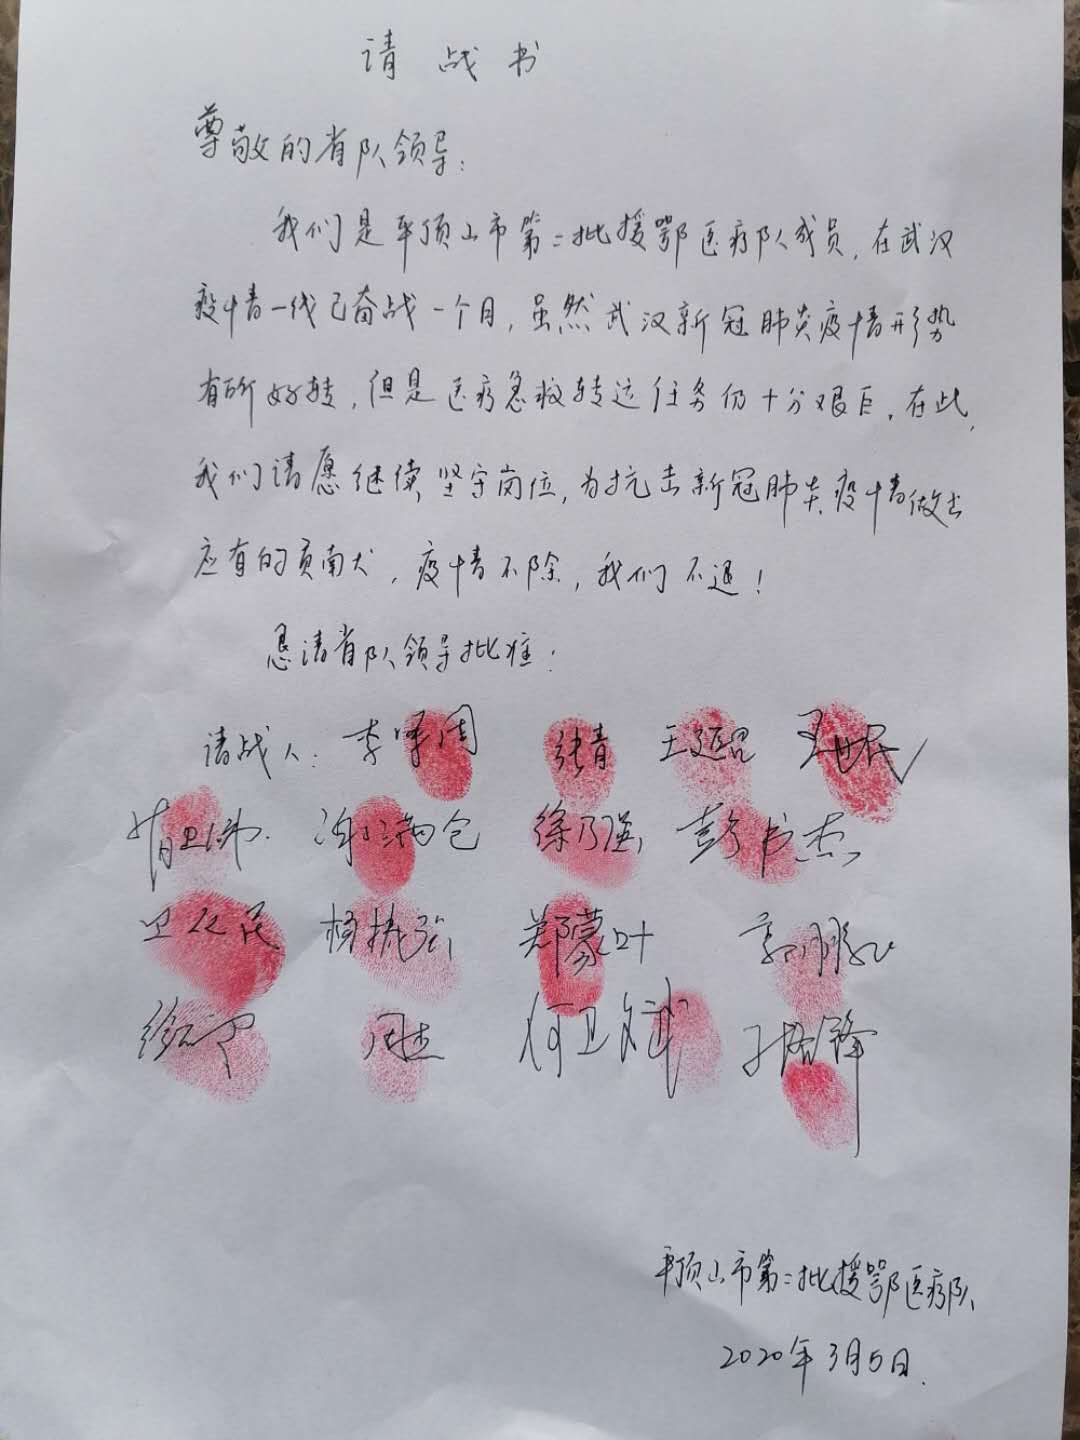 请战书
尊敬的省队领导:
我们是平顶山市第二批援鄂医疗队成员,在武汉
疫情一线已奋战一个月,虽然武汉新冠肺炎疫情形势
有所好转,但是医疗急救转运任务仍十分艰巨,在此,
我们请愿继续坚守岗位,为抗击新冠肺炎疫情做出
应有的贡献,疫情不除,我们不退!
恳请省队领导批准!
请战人: 张青 王延昭 王世民
徐乃强 彭书杰
卫义民 杨振强 郑蒙叶 郭鹏飞
周杰 何卫斌
平顶山市第二批援鄂医疗队
2020年3月5日.